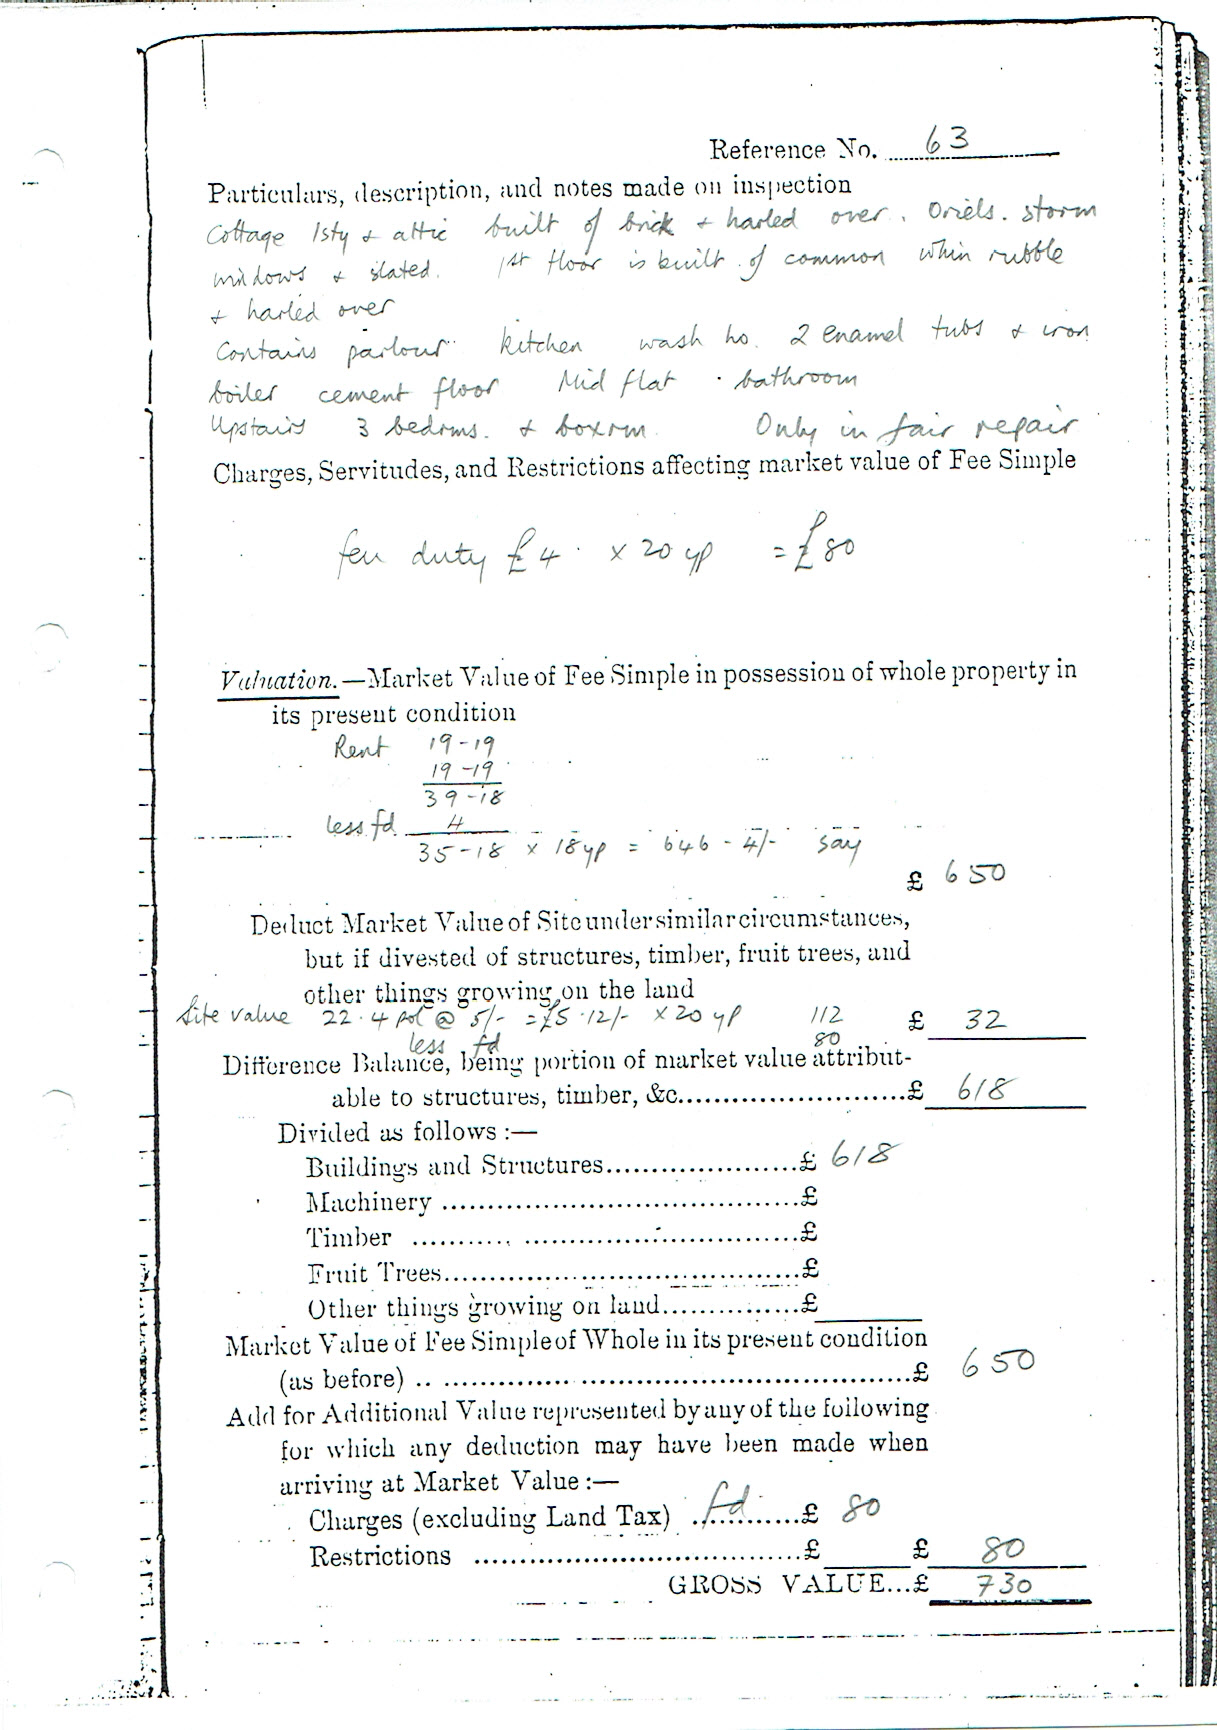 Reference No. 63
Particulars, description, and notes made on inspection
Cottage 1sty & attic built of brick & harled over. Oriels. storm
windows & slated. 1st floor is built of common whin rubble
& harled over
Contains parlour kitchen wash ho. 2 enamel tubs & iron
boiler cement floor Mid flat . bathroom
Upstairs 3 bedrms. & boxrm. Only in fair repair
Charges, Servitudes, and Restrictions affecting market value of Fee Simple
feu duty £4 x 20 yp = £80
Valuation.—Market Value of Fee Simple in possession of whole property in
its present condition
Rent 19-19
19-19
39-18
less fd. 4
35-18 x 18yp = 646-4/- say
£ 650
Deduct Market Value of Site under similar circumstances,
but if divested of structures, timber, fruit trees, and
other things growing on the land
Site value 22.4 pol @ 5/- = £5.12/- x 20 yp 112 £ 32
less fd 80
Difference Balance, being portion of market value attribut-
able to structures, timber, &c.........................£ 618
Divided as follows :—
Buildings and Structures.....................£ 618
Machinery .....................................£
Timber .....................................£
Fruit Trees.....................................£
Other things growing on land...............£
Market Value of Fee Simple of Whole in its present condition
(as before) .. ................................................£ 650
Add for Additional Value represented by any of the following
for which any deduction may have been made when
arriving at Market Value :—
Charges (excluding Land Tax) fd. ...........£ 80
Restrictions ..................................£ £ 80
GROSS VALUE...£ 730